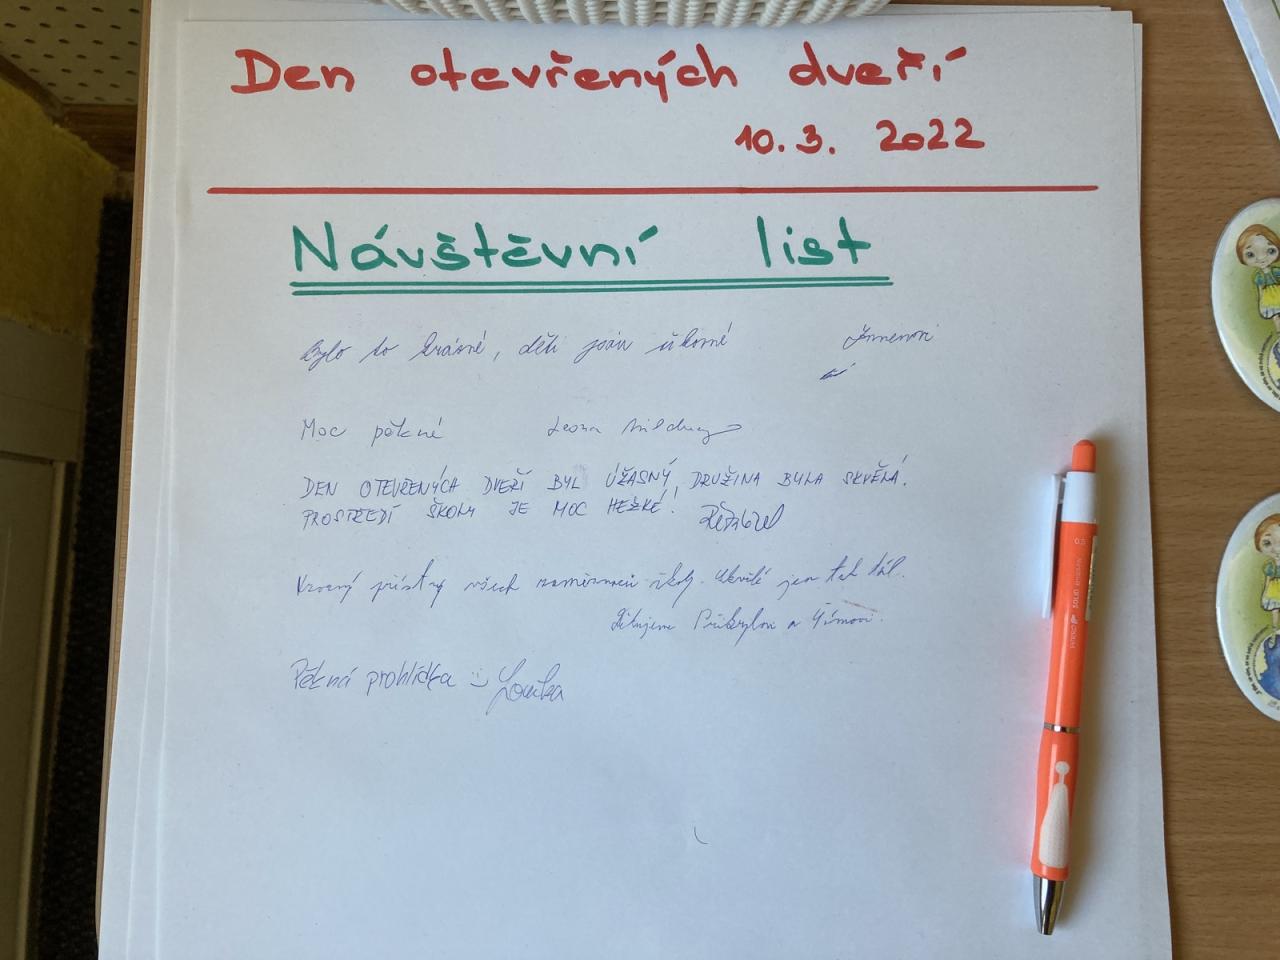 Den otevřených dveří
10. 3. 2022
Návštěvní list
Bylo to krásné, děti jsou úžasné
Moc pěkné Leona
DEN OTEVŘENÝCH DVEŘÍ BYL ÚŽASNÝ, DRUŽINA BYLA SKVĚLÁ.
PROSTŘEDÍ ŠKOLY JE MOC HEZKÉ!
přístup všech zaměstnanců školy. jen tak dál.
Děkujeme Přikrylovi a
Pěkná prohlídka :-)